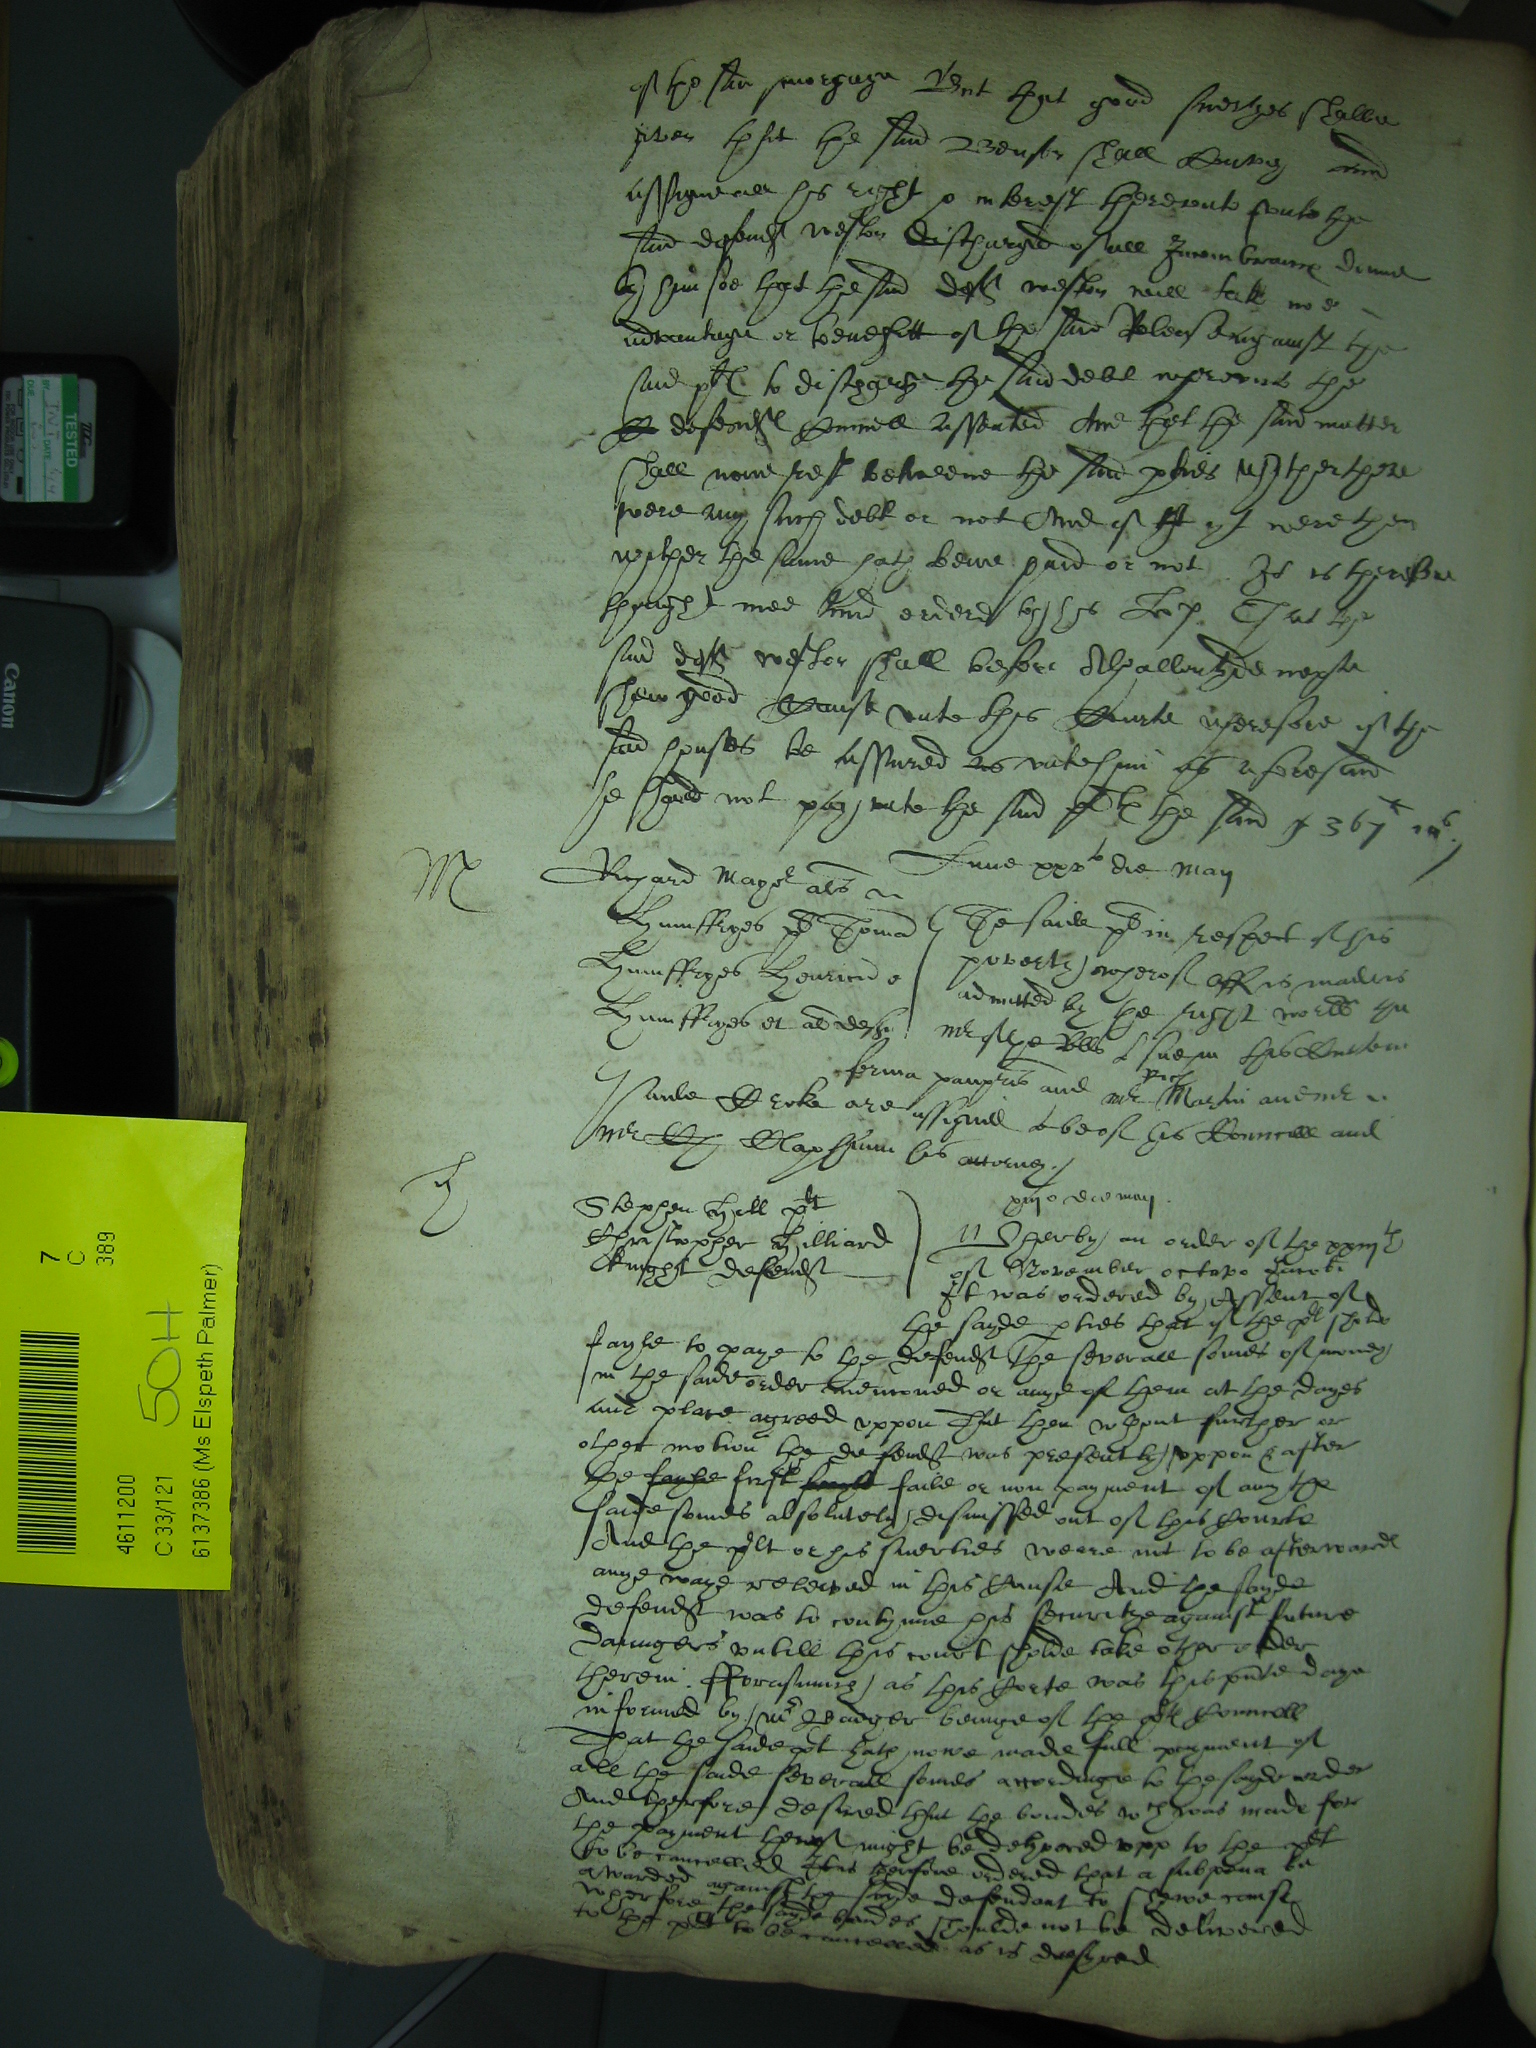 of the said morgage But that good suerties shalbe
given that the said Benson shall Convey and
assigne all his right & interest thereunto unto the
said defendt weston discharged of all Incombraunce donne
by him soe that the said deft weston will take noe
advantage or benefitt of the said Release against the
said plt to discharge the said debt whereunto the
defendtes Counsell assented And that the said matter
shall nowe rest betweene the said pties whether there
were any such debt or not And if yt were then
whether the same hath bene paid or not. It is therefore
thought meet and ordered by his Lop. That the
said deft weston shall before Mychaellmastyde nexte
shew good Cause unto this Courte wherefore if the
said houses be assured unto him as aforesaid
he should not pay unto the said plt the said 367li
M
Lune die May
Richard als
Humffryes plt Thomas
Humffryes Henrico
Humffryes et al deftes
The saide plt in respect of his
poverty wherof affid is made is
admitted by the right worll the
mr of the Rolls to sue in this Court in
forma paupis and mr Rich Martin and mr
Saule Croke are assigned to be of his Councell and
mr Clapham his attorney.
H
xiijo die may.
Stephen Hill plt
Christopher Hilliard
knight defendt
Wherby an order of the xxiijth
of November octavo Jacobi
It was ordered by Assent of
the sayde pties that if the plt sholde
fayle to paye to the defendt The severall somes of money
in the saide order mencioned or anye of them at the dayes
and place agreed uppon That then wthout further or
other motion the defendt was presently uppon & after
the fayle first faile or non payment of any the
saide somes absolutely dismissed out of this Courte
And the plt or his suerties weare not to be afterwards
anye waye releived in this Cause And the sayde
defendt was to contynue his securitye against future
daungers untill this court sholde take other order
therein. Fforasmuch as this Corte was this pnte daye
informed by mr beinge of the plts Councell
That the saide plt hath nowe made full payment of
all the saide severall somes accordinge to the sayde order
And therefore desired that the bondes wch was made for
the payment therof might be delyvered upp to the plt
to be cancelled It is therfore ordered that a subpena be
awarded against the sayde defendant to shewe cause
wherfore the sayde bondes shoulde not be delivered
to the plt to be cancelled as is desyred
TESTED
Canon
7
C
389
50H
4611200
C 33/121
6137386 (Ms Elspeth Palmer)